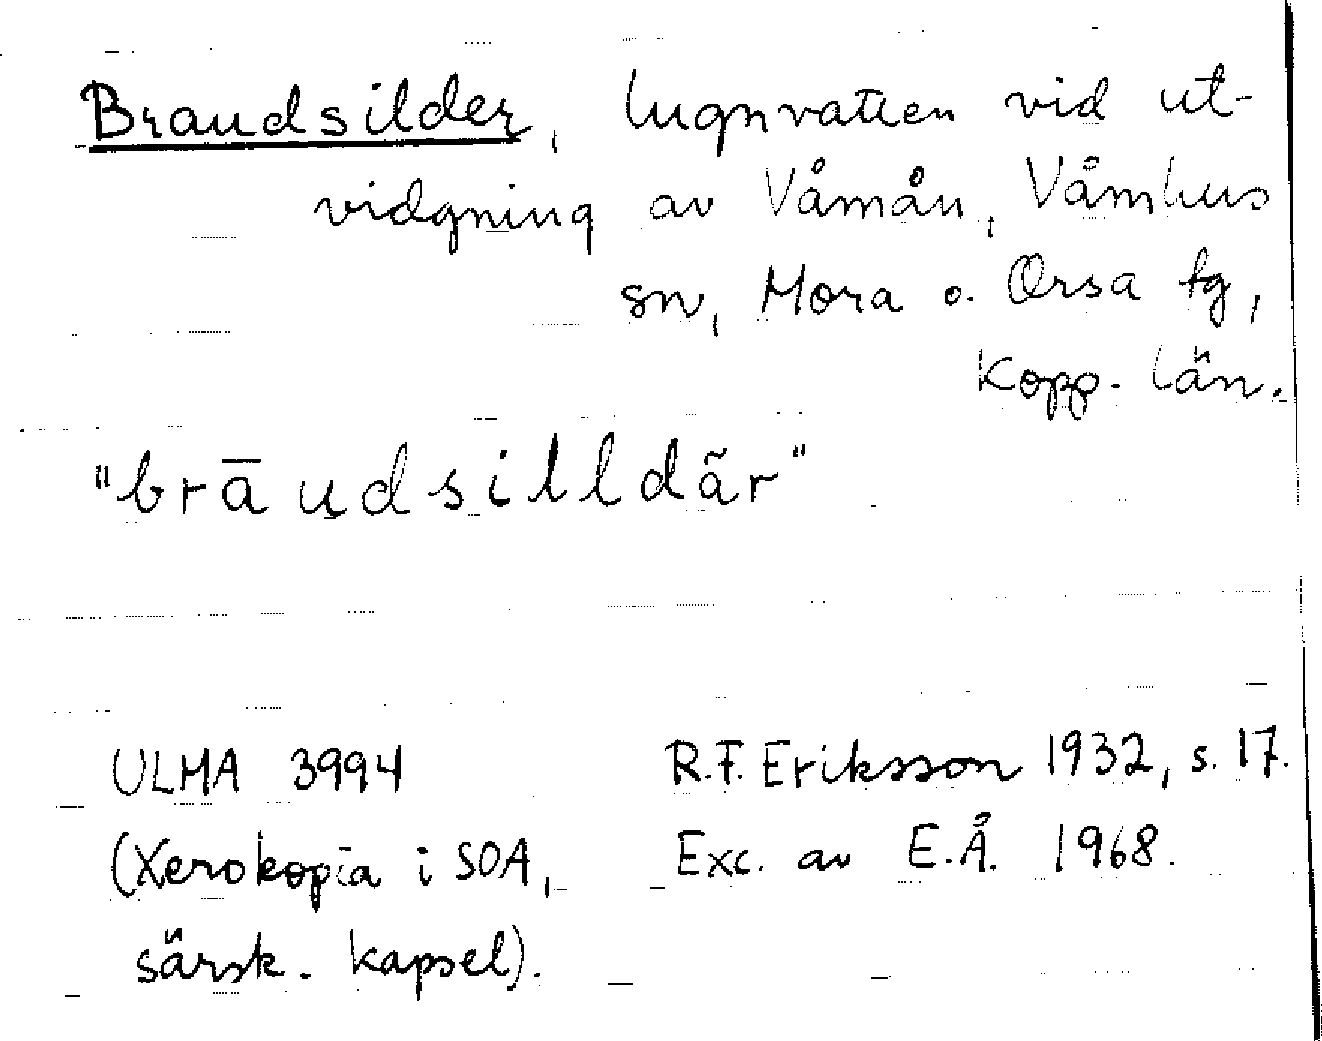 Braudsilder, lugnvatten vid ut-
vidgning av Våmån, Våmhus
sn, Mora o. Orsa tg,
Kopp. län.
"brāu̯dsilldãr"
ULMA 3994 R.F. Eriksson 1932, s. 17.
(Xerokopia i SOA, Exc. av E.Å. 1968.
särsk. kapsel).